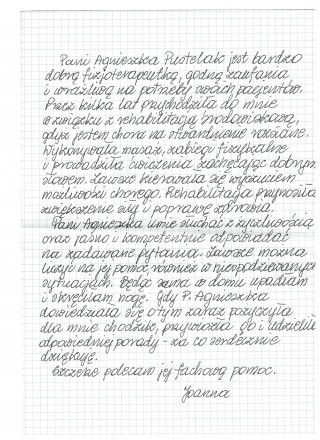 Pani Agnieszka Pustelak jest bardzo
dobrą fizjoterapeutką, godną zaufania
i wrażliwą na potrzeby swoich pacjentów.
Przez kilka lat przychodziła do mnie
w związku z rehabilitacją środowiskową,
gdyż jestem chora na stwardnienie rozsiane.
Wykonywała masaż, zabiegi fizykalne
i prowadziła ćwiczenia zachęcając dobrym
słowem. Zawsze kierowała się wyczuciem
możliwości chorego. Rehabilitacja przynosiła
zwiększenie sił i poprawę zdrowia.
Pani Agnieszka umie słuchać z życzliwością
oraz jasno i kompetentnie odpowiadać
na zadawane pytania. Zawsze można
liczyć na jej pomoc, również w niespodziewanych
sytuacjach. Będąc sama w domu upadłam
i skręciłam nogę. Gdy P. Agnieszka
dowiedziała się o tym zaraz pożyczyła
dla mnie chodzik, przywiozła go i udzieliła
odpowiedniej porady - za co serdecznie
dziękuję.
Szczerze polecam jej fachową pomoc.
Joanna